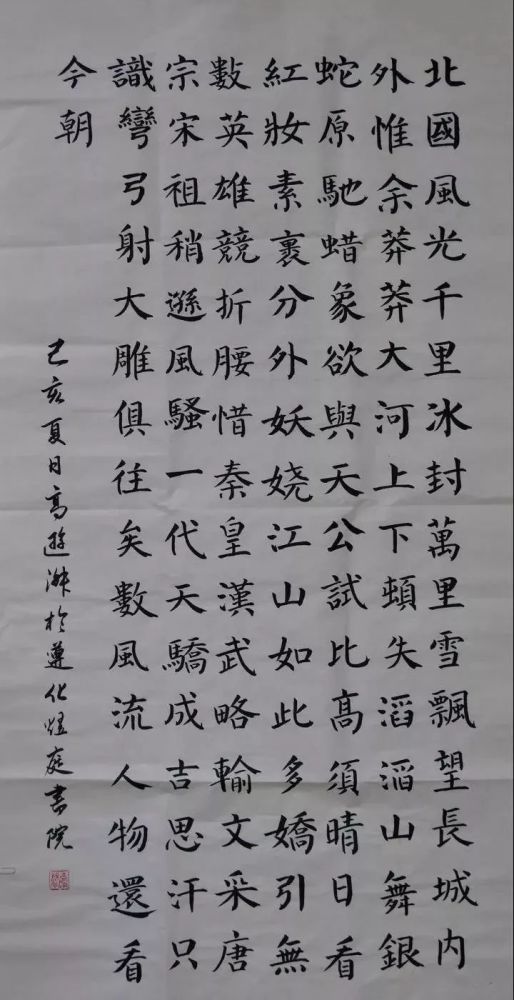 北國風光千里冰封萬里雪飄望長城内
外惟余莽莽大河上下頓失滔滔山舞銀
蛇原馳蜡象欲與天公試比高須晴日看
紅妝素裹分外妖娆江山如此多嬌引無
數英雄競折腰惜秦皇漢武略輸文采唐
宗宋祖稍遜風騷一代天驕成吉思汗只
識彎弓射大雕俱往矣數風流人物還看
今朝
己亥夏日高遊於遵化煜庭書院